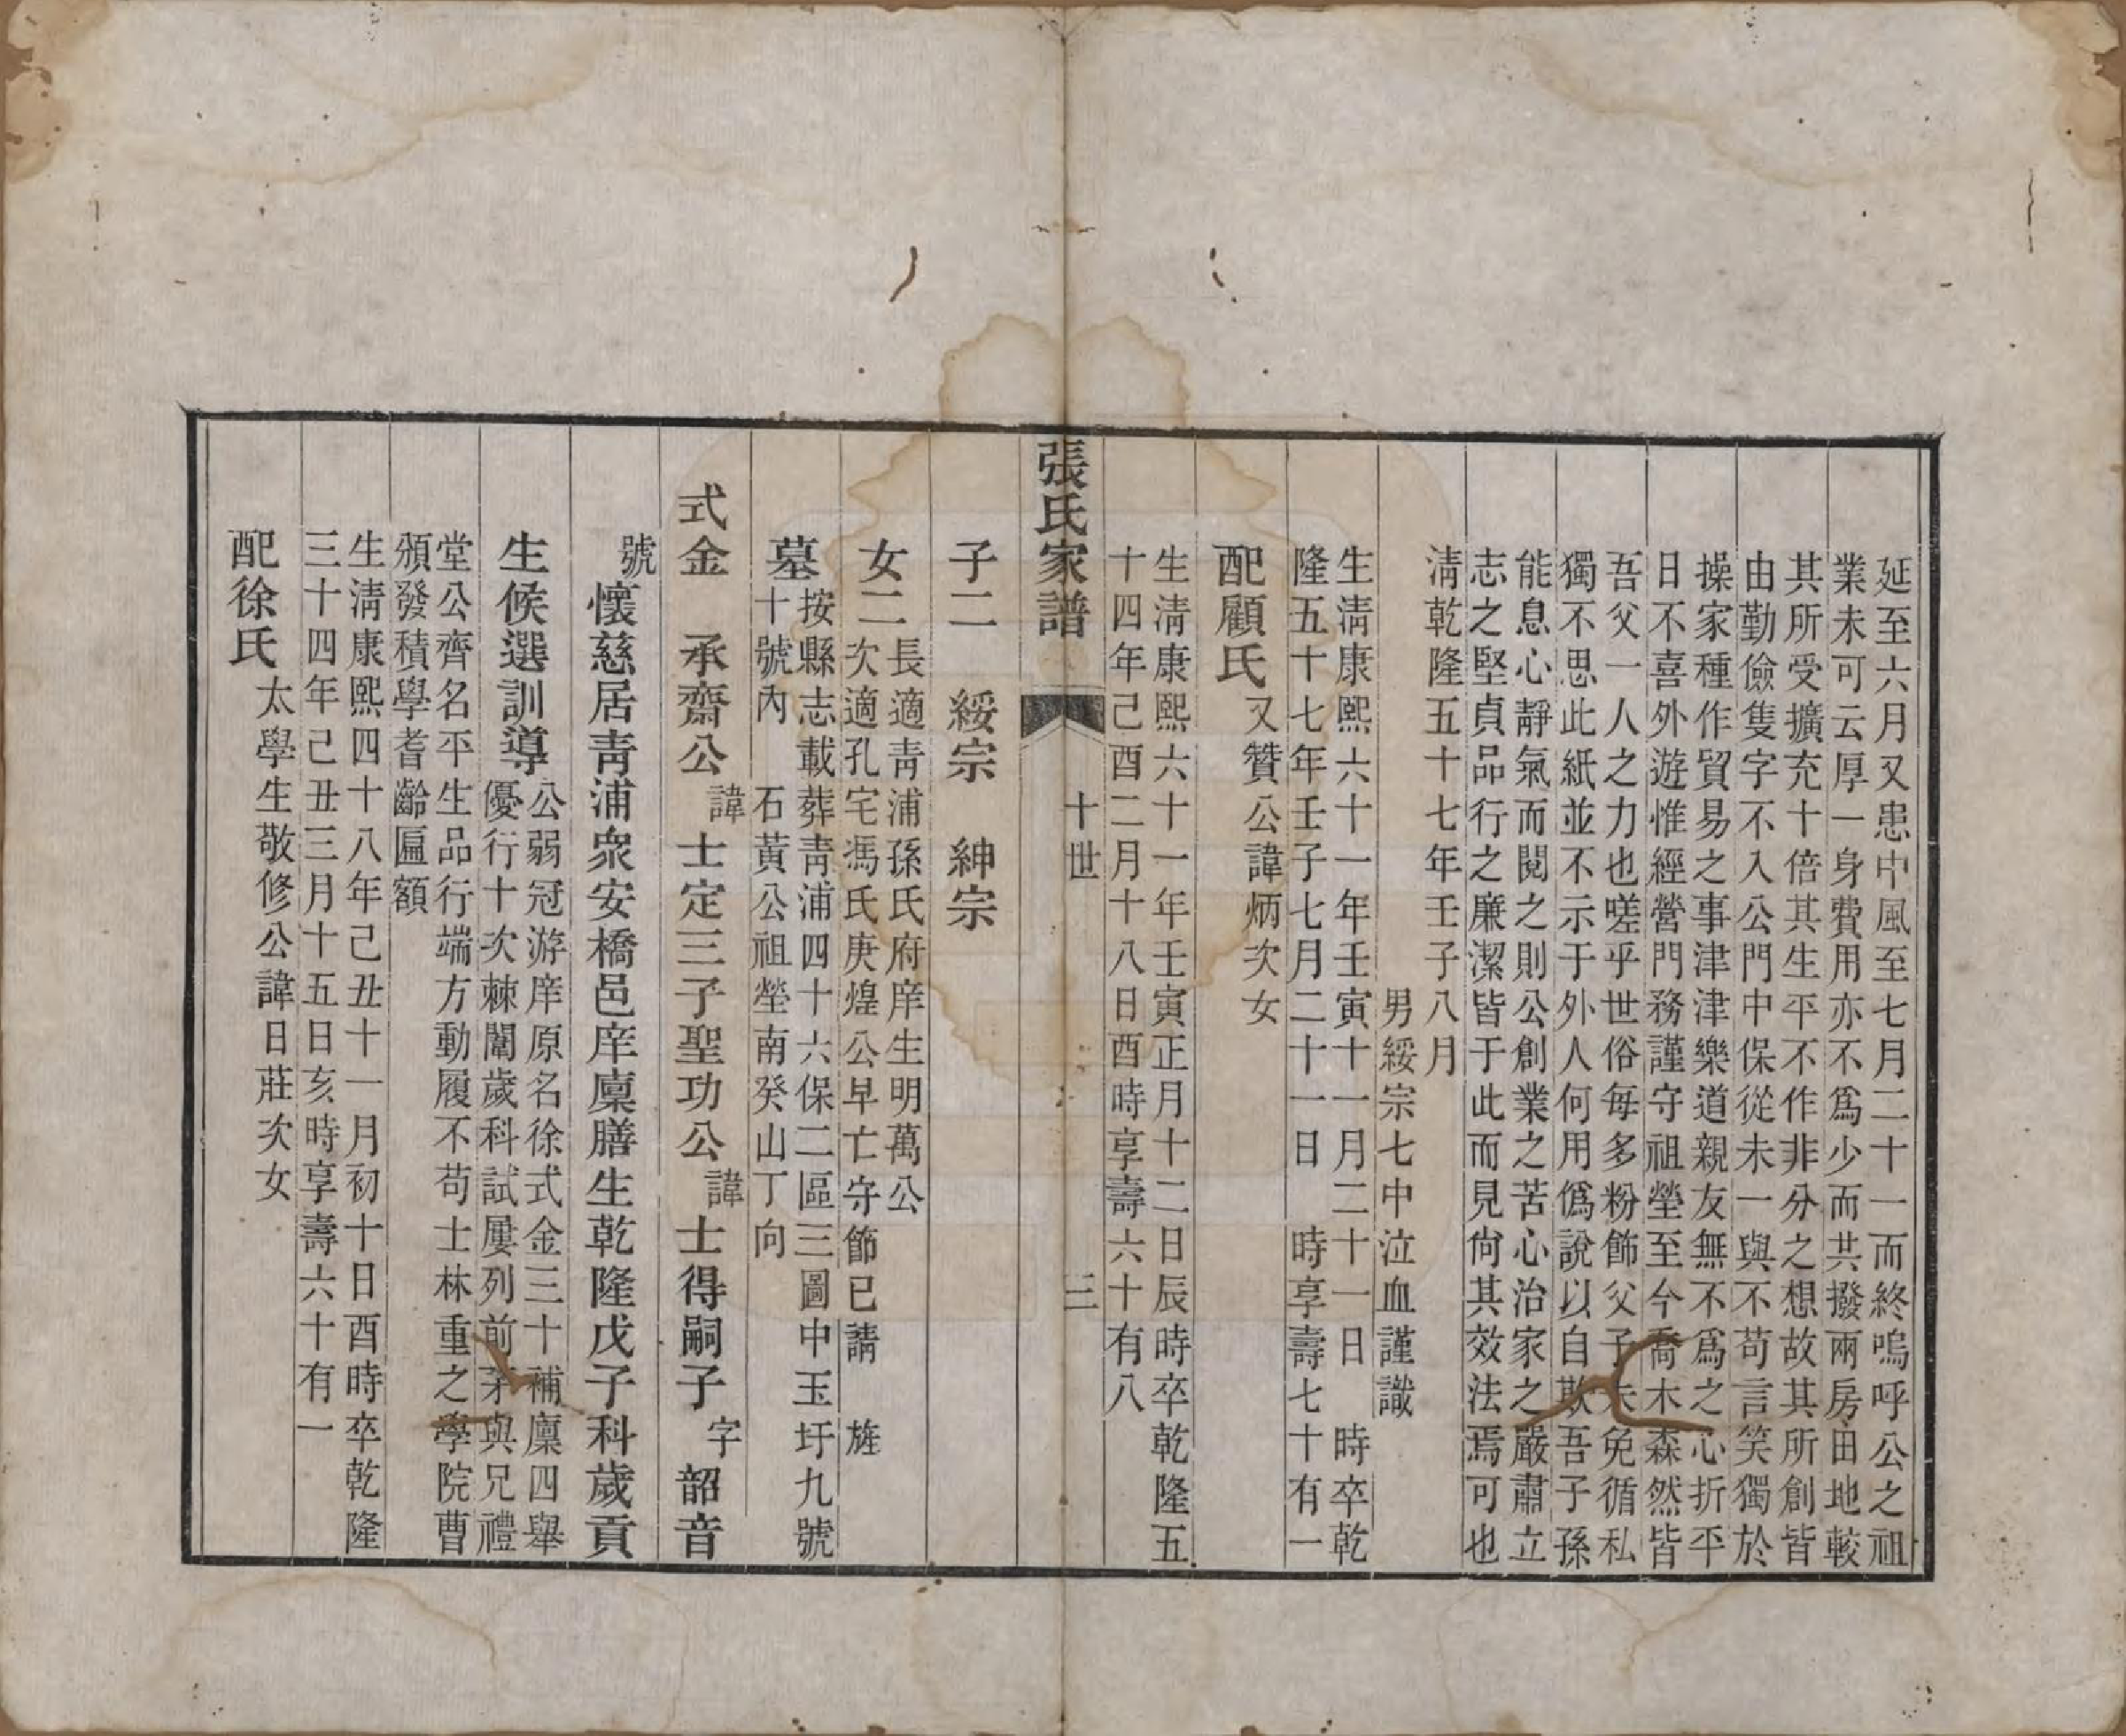 延至六月又患中風至七月二十一而終嗚呼公之祖
業未可云厚一身費用亦不爲少而共撥兩房田地較
其所受擴充十倍其生平不作非分之想故其所創皆
由勤儉隻字不入公門中保從未一與不苟言笑獨於
操家種作貿易之事津津樂道親友無不爲之心折平
日不喜外遊惟經營門務謹守祖塋至今喬木森然皆
吾父一人之力也嗟乎世俗每多粉飾父子未免循私
獨不思此紙並不示于外人何用僞說以自欺吾子孫
能息心靜氣而閱之則公創業之苦心治家之嚴肅立
志之堅貞品行之廉潔皆于此而見尙其效法焉可也
淸乾隆五十七年壬子八月
男綏宗七中泣血謹識
生淸康熙六十一年壬寅十一月二十一日 時卒乾
隆五十七年壬子七月二十一日 時享壽七十有一
配顧氏 又贊公諱炳次女
生淸康熙六十一年壬寅正月十二日辰時卒乾隆五
十四年己酉二月十八日酉時享壽六十有八
張氏家譜 十世 三
子二 綏宗 紳宗
女二 長適靑浦孫氏府庠生明萬公
次適孔宅馮氏庚煌公早亡守節已請 旌
墓 按縣志載葬靑浦四十六保二區三圖中玉圩九號
十號內 石黃公祖塋南癸山丁向
式金 承齋公 諱士定三子聖功公 諱士得嗣子 字韶音
號懷慈居靑浦衆安橋邑庠廩膳生乾隆戊子科歲貢
生候選訓導 公弱冠游庠原名徐式金三十補廩四舉
優行十次棘闈歲科試屢列前茅與兄禮
堂公齊名平生品行端方動履不苟士林重之學院曹
頒發積學耆齡匾額
生淸康熙四十八年己丑十一月初十日酉時卒乾隆
三十四年己丑三月十五日亥時享壽六十有一
配徐氏 太學生敬修公諱日莊次女